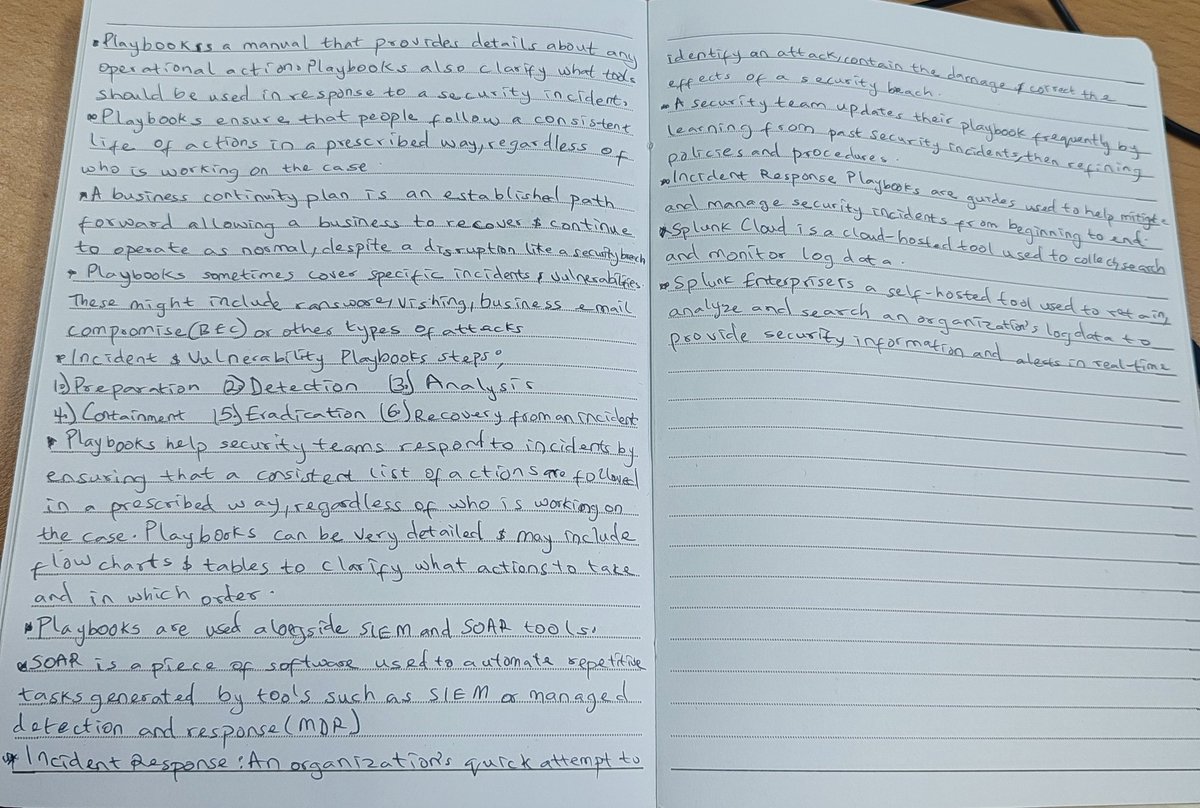 • Playbook is a manual that provides details about any
operational action. Playbooks also clarify what tools
should be used in response to a security incident.
• Playbooks ensure that people follow a consistent
life of actions in a prescribed way, regardless of
who is working on the case.
• A business continuity plan is an established path
forward allowing a business to recover & continue
to operate as normal, despite a disruption like a security breach
• Playbooks sometimes cover specific incidents & vulnerabilities.
These might include ransware, vishing, business email
compromise (BEC) or other types of attacks
• Incident & Vulnerability Playbooks steps:
1.) Preparation 2.) Detection (3.) Analysis
4.) Containment (5.) Eradication (6.) Recovery from an incident
• Playbooks help security teams respond to incidents by
ensuring that a consistent list of actions are followed
in a prescribed way, regardless of who is working on
the case. Playbooks can be very detailed & may include
flow charts & tables to clarify what actions to take
and in which order.
• Playbooks are used alongside SIEM and SOAR tools.
• SOAR is a piece of software used to automate repetitive
tasks generated by tools such as SIEM or managed
detection and response (MDR)
• Incident Response: An organization's quick attempt to
identify an attack, contain the damage & correct the
effects of a security beach.
• A security team updates their playbook frequently by
learning from past security incidents, then refining
policies and procedures.
• Incident Response Playbooks are guides used to help mitigate
and manage security incidents from beginning to end.
• Splunk Cloud is a cloud-hosted tool used to collect, search
and monitor log data.
• Splunk Enterprise is a self-hosted tool used to retain,
analyze and search an organization's log data to
provide security information and alerts in real-time